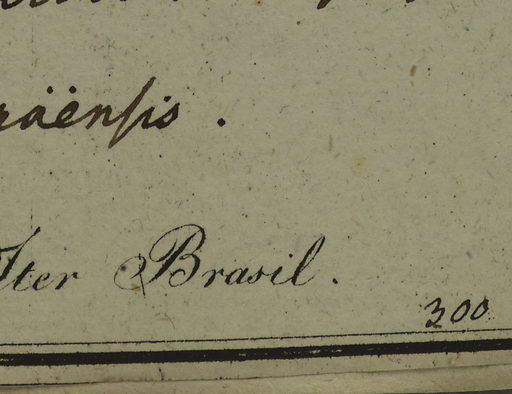 räënsis.
Iter Brasil.
300